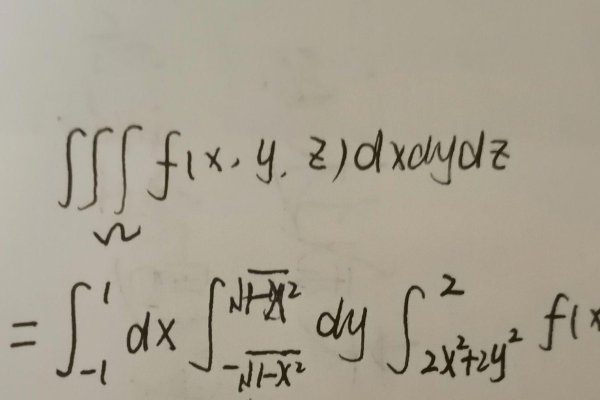 ∭_Ω f(x, y, z)dxdydz
= ∫_{-1}^{1} dx ∫_{-√(1-x²)}^{√(1-x²)} dy ∫_{2x²+2y²}^{2} f(x